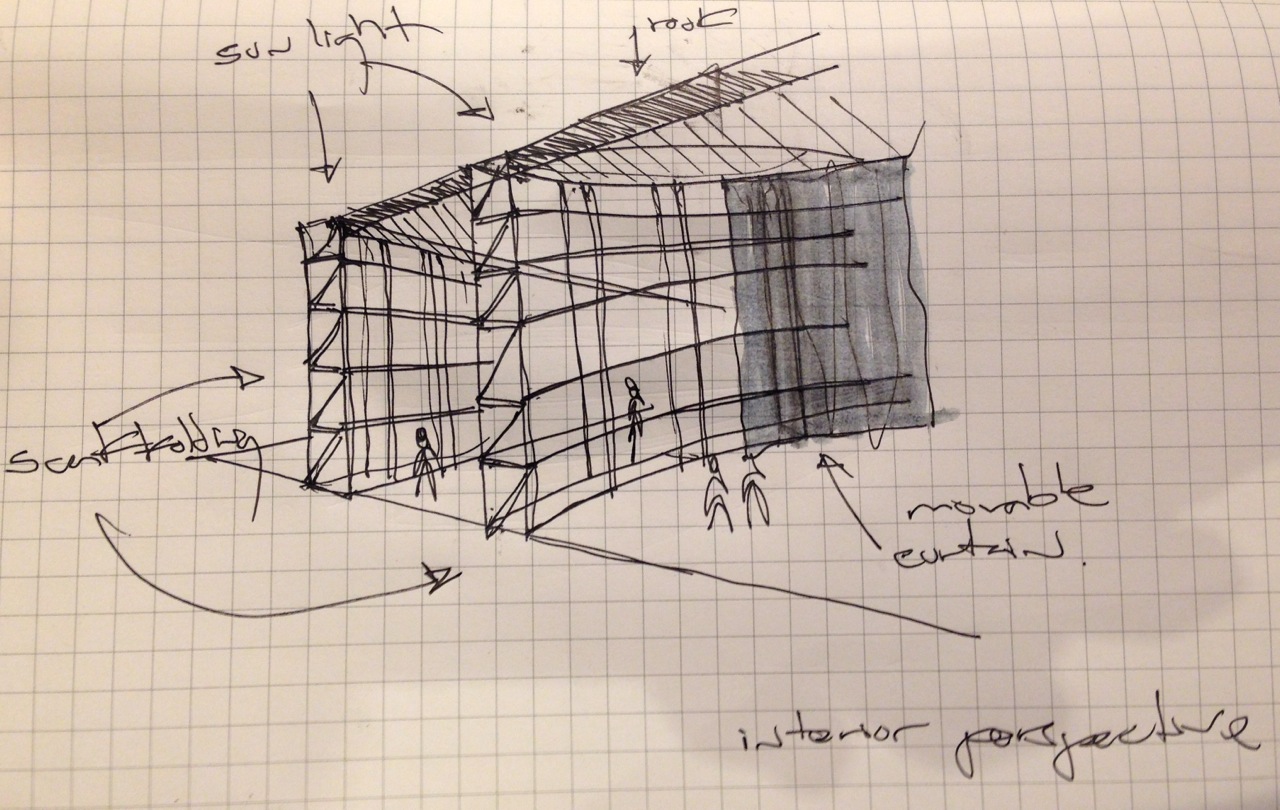 sun light
roof
scaffolding
movable
curtain.
interior perspective